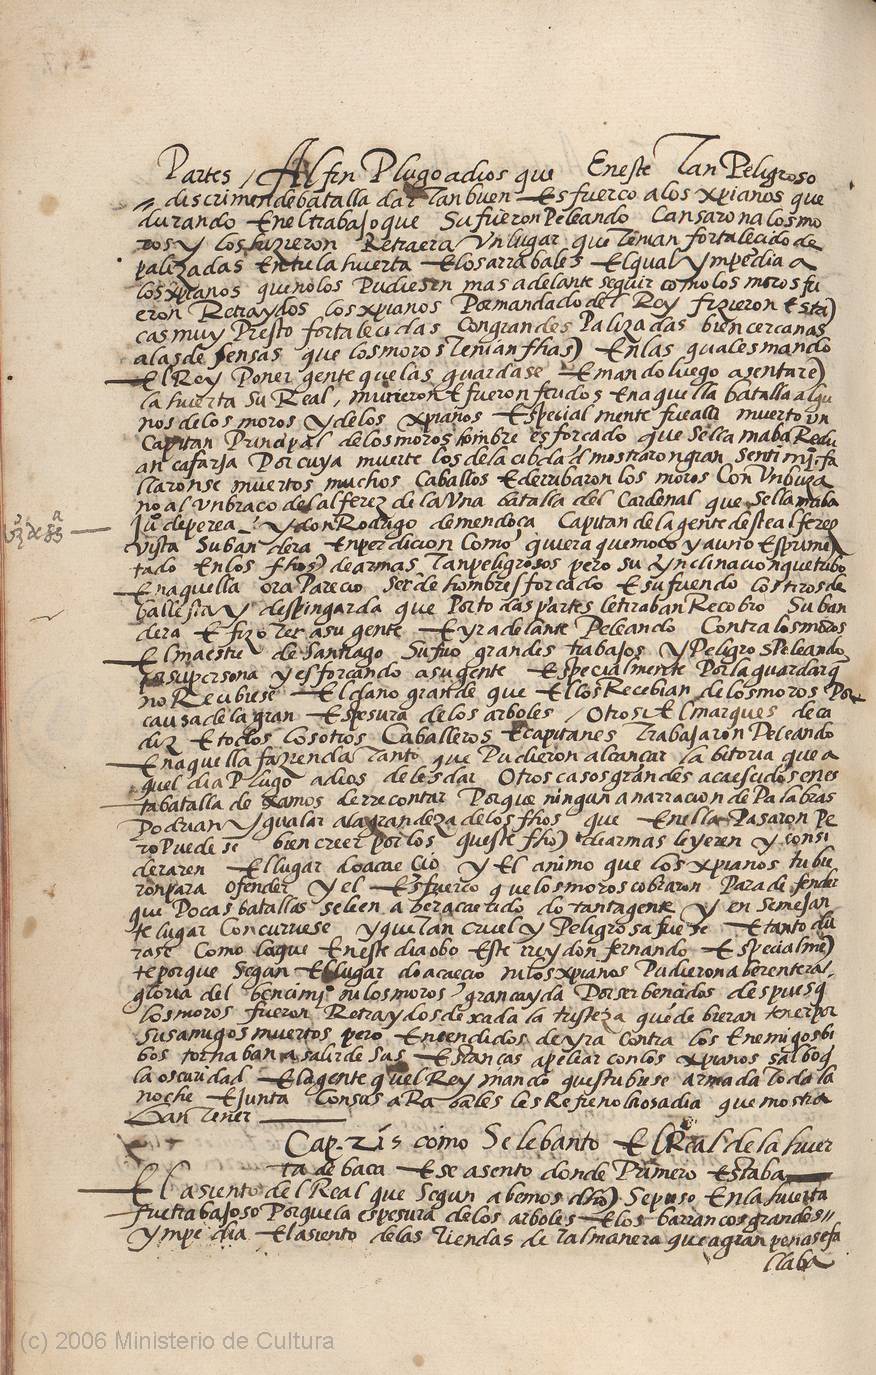 Partes / Al fin Plugo a dios que En este Tan Peligroso
discrimen de batalla dar Tan buen Esfuerço a los xpianos que
durando En el trabajo que Su fueron Peleando Cansaron a los mo
ros y los hizieron Retraer a Un lugar que Tenian fortalecido de
palizadas Entre la huerta E los arrabales El qual ympedia a
los xpianos que no los Pudiesen mas adelante seguir como los moros fu
eron Retraydos los xpianos Por mandado del Rey fizieron Esta)
cas muy Presto fortalecidas Con grandes Palizadas bien cercanas
a las defensas que los moros Tenian fhas) En las quales mando
El Rey Poner gente que las guardase E mando luego asentar e)
la huerta Su Real, murieron E fueron feridos En aquella batalla algu
nos de los moros y de los xpianos Especial mente fue alli muerto Un
Capitan Principal de los moros hombre esforçado que se llamaba Redu
an cafarja Por cuya muerte los de la cibdad mostraron gran Sentimi.º fa
llaronse muertos muchos Caballos E derribaron los moros Con Un buza
no al Un braço del alferez de la Una batalla del Cardenal que Se llamaba
juº de perea y don Rodrigo de mendoça Capitan de la gente deste alferez
Vista Su bandera En perdicion Como quiera que moço y au no Esprime
tado En los fhos) de armas Tan peligrosos pero su ynclinacion que tubo
En aquella ora Parecio Ser de hombre sforçado E sufriendo los tiros de
ballesta y despingarda que Por todas partes le tiraban Recobro Su ban
dera E fizo a su gente E yr adelante Peleando Contra los moros
El maestre de Santiago Sufrio grandes trabajos y Peligros Peleando
Por su persona y esforcando a su gente Especialmente Por la guardar q
no Recibiese El daño grande que Ellos Recebian de los moros Por
causa de la gran Espesura de los arboles / Otrosi El marques de ca
diz E todos los otros Caballeros E capitanes Trabajaron Peleando
En aquella fazienda Tanto que Pudieron alcançar la bitoria que a
quel dia Plugo a dios de les dar Otros casos grandes acaescidos en es
ta batalla dexamos de recontar Porque ningun a narracion de Palabras
Podrian ygualar a la grandeza de los fhos que En ella Pasaron Pe
ro Puede se bien creer por los queste fho) de armas leyeren y consi
deraren El lugar do acaecio y El animo que los xpianos tubie
ron para ofender y el Esfuerço que los moros cobraron Para defender
que Pocas batallas se leen aber acaecido do tanta gente y en Semejan
te lugar Concurriese y que tan cruel y Peligrosa fuese E tanto du
rase Como la que En este dia obo Este rrey don fernando Especialme)
te porque Segun El lugar do acaecio ni los xpianos Pudieron aber entera
gloria del bencimiº ni los moros gran cayda Por ser bencidos despues q
los moros fueron Retraydos dexada la tristeza que debieran tener por
sus amigos muertos pero Encendidos de yra contra los Enemigos bi
bos tornaban a salir de sus Estanças a pelear con los xpianos salbo q
la oscuridad E la gente quel Rey mando questubiese armada toda la
noche E junta Con sus aRabales les Refreno la osadia que mostra
ban Tener
Cap. como Se lebanto El Real de la huer
ta de baça E se asento donde Primero Estaba
El asiento del Real que Segun abemos dho) Se puso En la huerta
fue trabajoso Porque la espesura de los arboles E los barrancos grandes
ympedia El asiento de las Tiendas de tal manera que a gran pena se fa
llaba